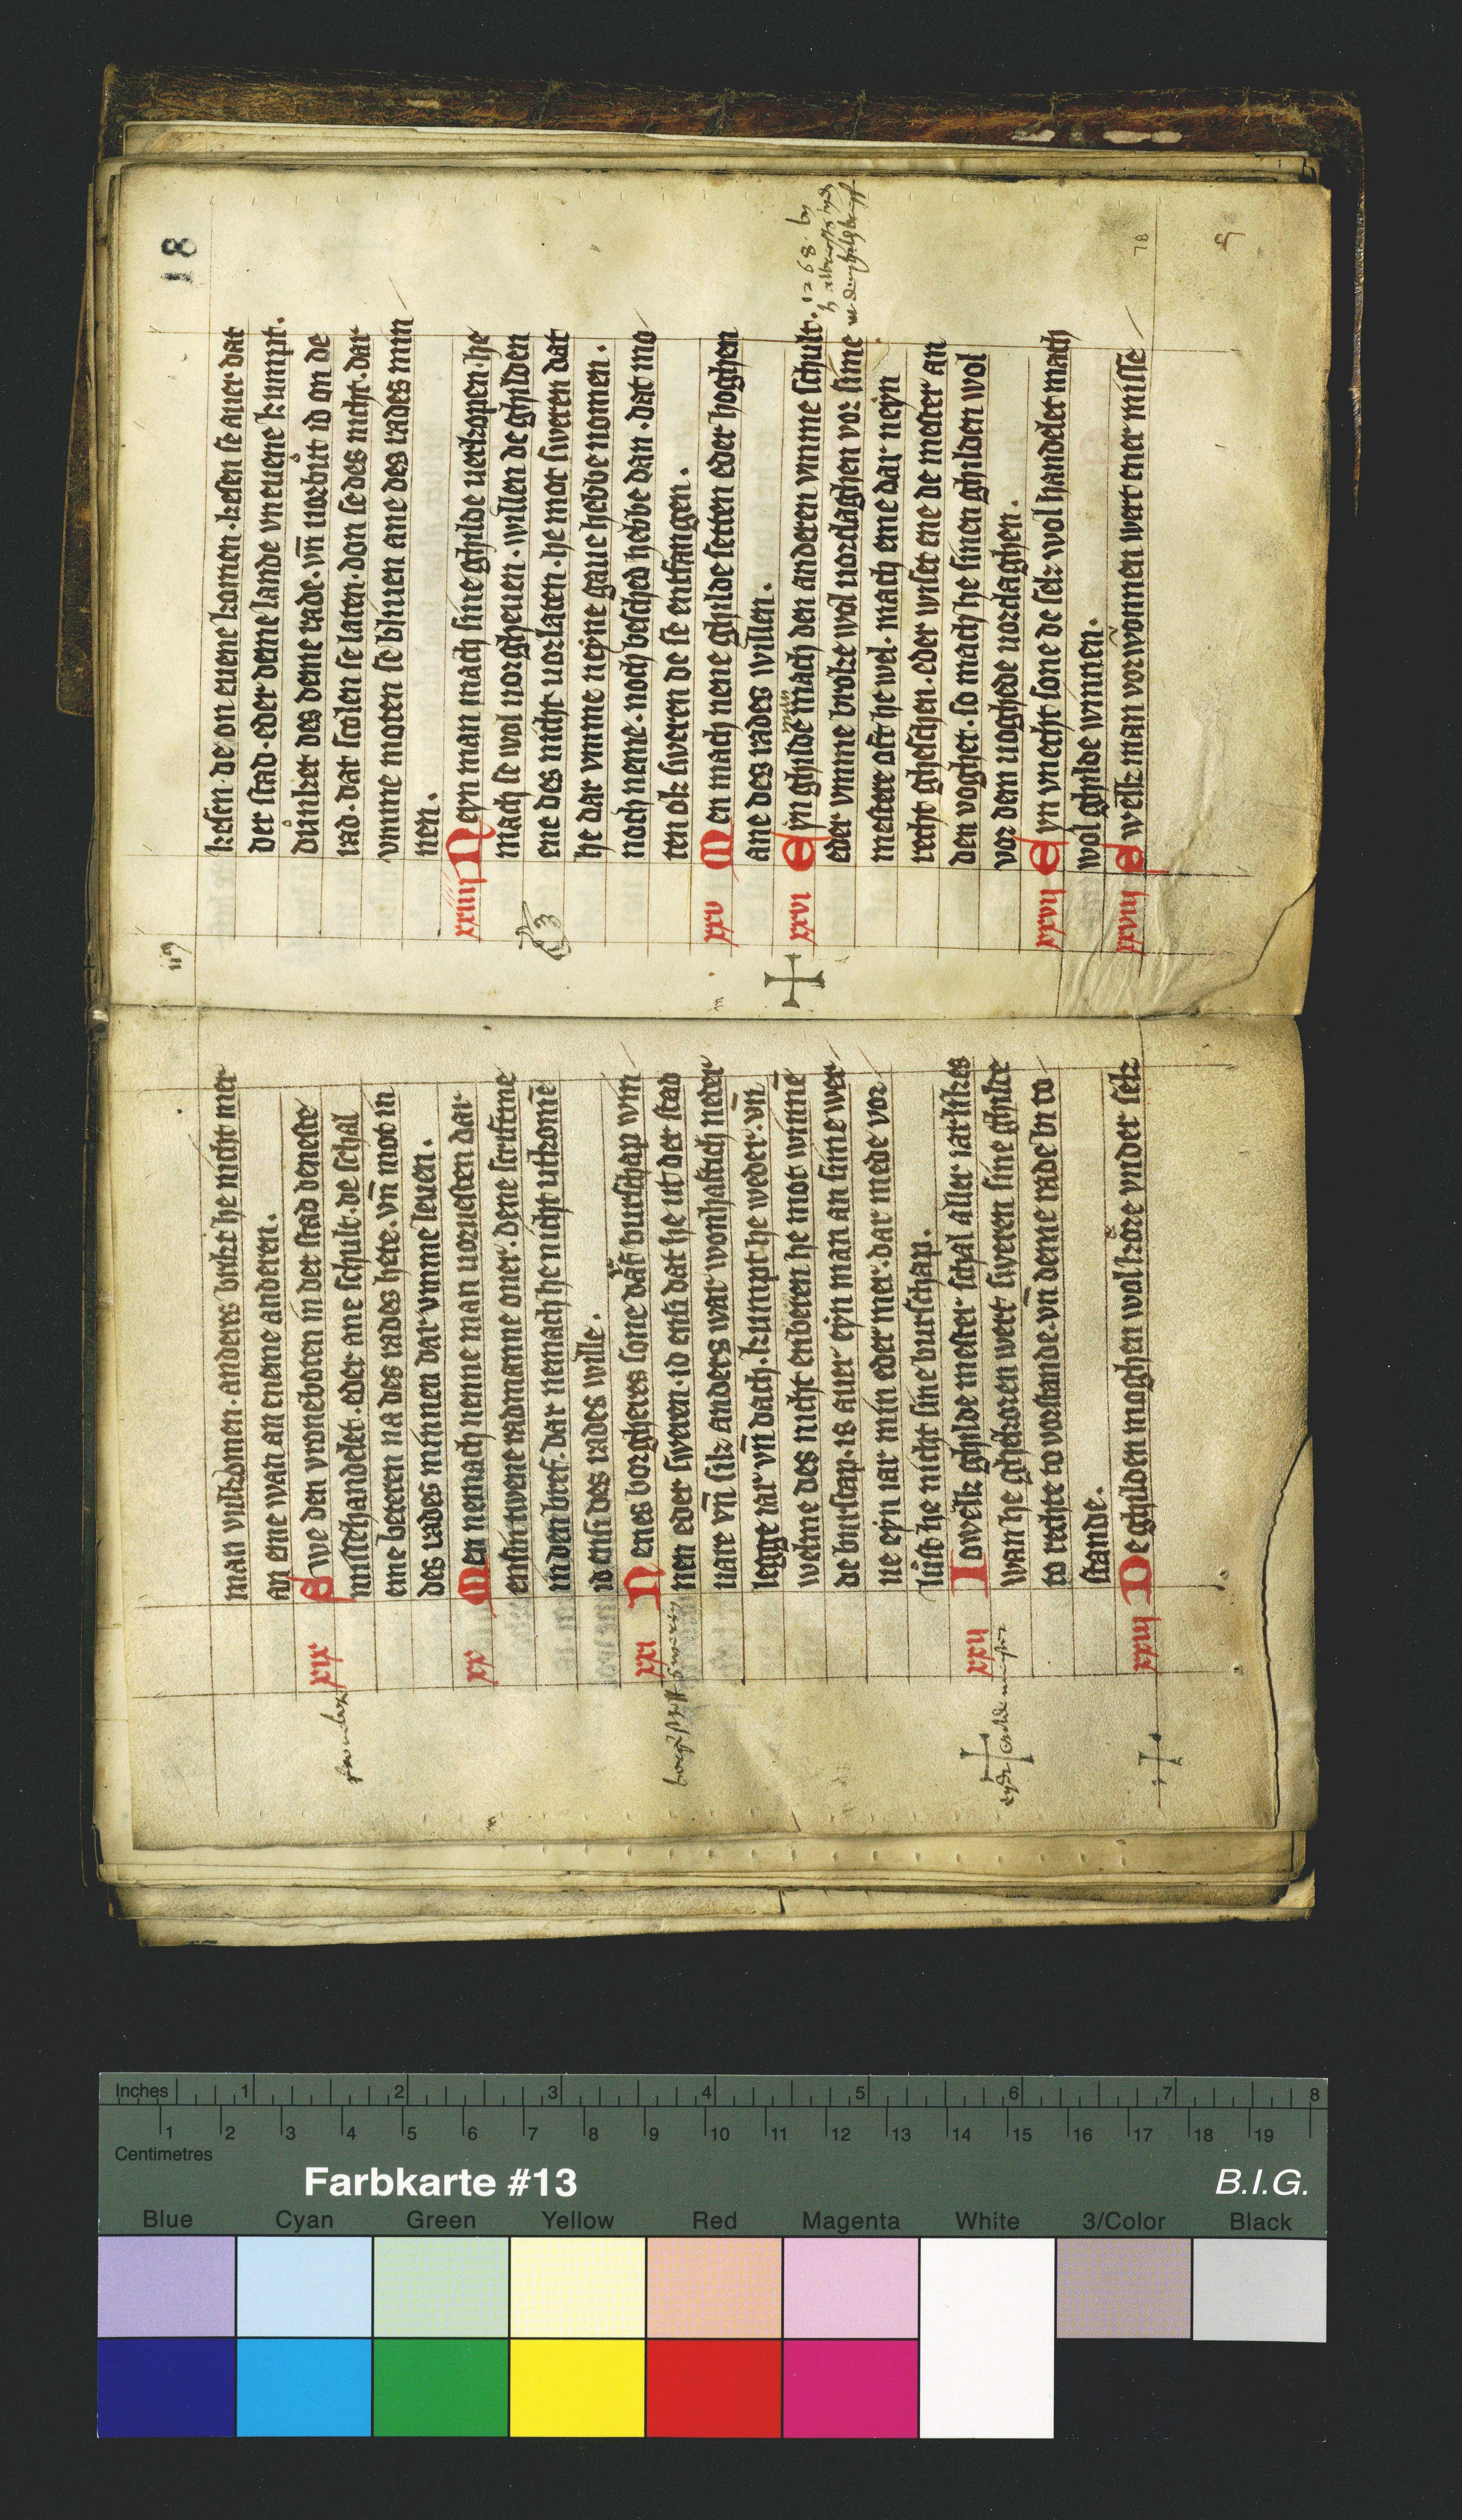 man vulkomen. anderes brikt he nicht mer
an eme wan an eneme anderen.
xix Swe den vroneboten in der stad deneste
missehandelet. eder ane schult. de schal
eme beteren na des rades hete. vn̄ mot in
des rades minnen dar vmme leuen.
xx Men nemach nenne man voruesten dar
ensin twene radmanne ouer. dene scriftme
in den bref. dar nemach he nicht utkomē
id ensi des rades wille.
xxi Nenes borgheres sone darf burschap win
nen eder sweren. id ensi dat he ut der stad
uare vn̄ sik anders war wonhaftich neder
legge iar vn̄ dach. kumpt he weder. vn̄
welme des nicht enberen he mot winnē
de burscap. is auer eyn man an sime wer
ue eyn iar min eder mer. dar mede vor
lůst he nicht sine burschap.
xxii Iowelk ghilde mester schal aller iarlikes
wan he ghekoren wert sweren sine ghilde
to rechte to vorstande. vn̄ deme rade bi to
stande.
xxiii De ghilden moghen wol kore vnder sik
18
kesen. de on euene komen. kesen se auer dat
der stad. eder deme lande vneuene kumpt.
důnket des deme rade. vn̄ vorbůt id on de
rad. dat scolen se laten. don se des nicht. dar
vmme moten se bliuen ane des rades min
nen.
xxiiii Neyn man mach sine ghilde uerkopen. he
mach se wol uorgheuen. willen de ghilden
ene des nicht uorlaten. he mot sweren dat
he dar vmme neyne gaue hebbe nomen.
noch neme. noch besched hebbe dan. dat mo
ten ok sweren de se entfangen.
xxv Men mach nene ghilde setten eder hoghen
ane des rades willen.
xxvi Eyn ghilde man mach den anderen vmme schult. 1268
eder vmme broke wol uordaghen vor sime
mestere oft he wel. mach eme dar neyn
recht gheschen. eder wiset ene de mester an
den voghet. so mach he sinen ghilden wol
vor dem uoghede uordaghen.
xxvii Eyn knecht sone de sek wol handelet mach
wol ghilde winnen.
xxviii Swelk man vorwonnen wert ener misse
78
Inches 1 2 3 4 5 6 7 8
1 2 3 4 5 6 7 8 9 10 11 12 13 14 15 16 17 18 19
Centimetres
Farbkarte #13 B.I.G.
Blue Cyan Green Yellow Red Magenta White 3/Color Black